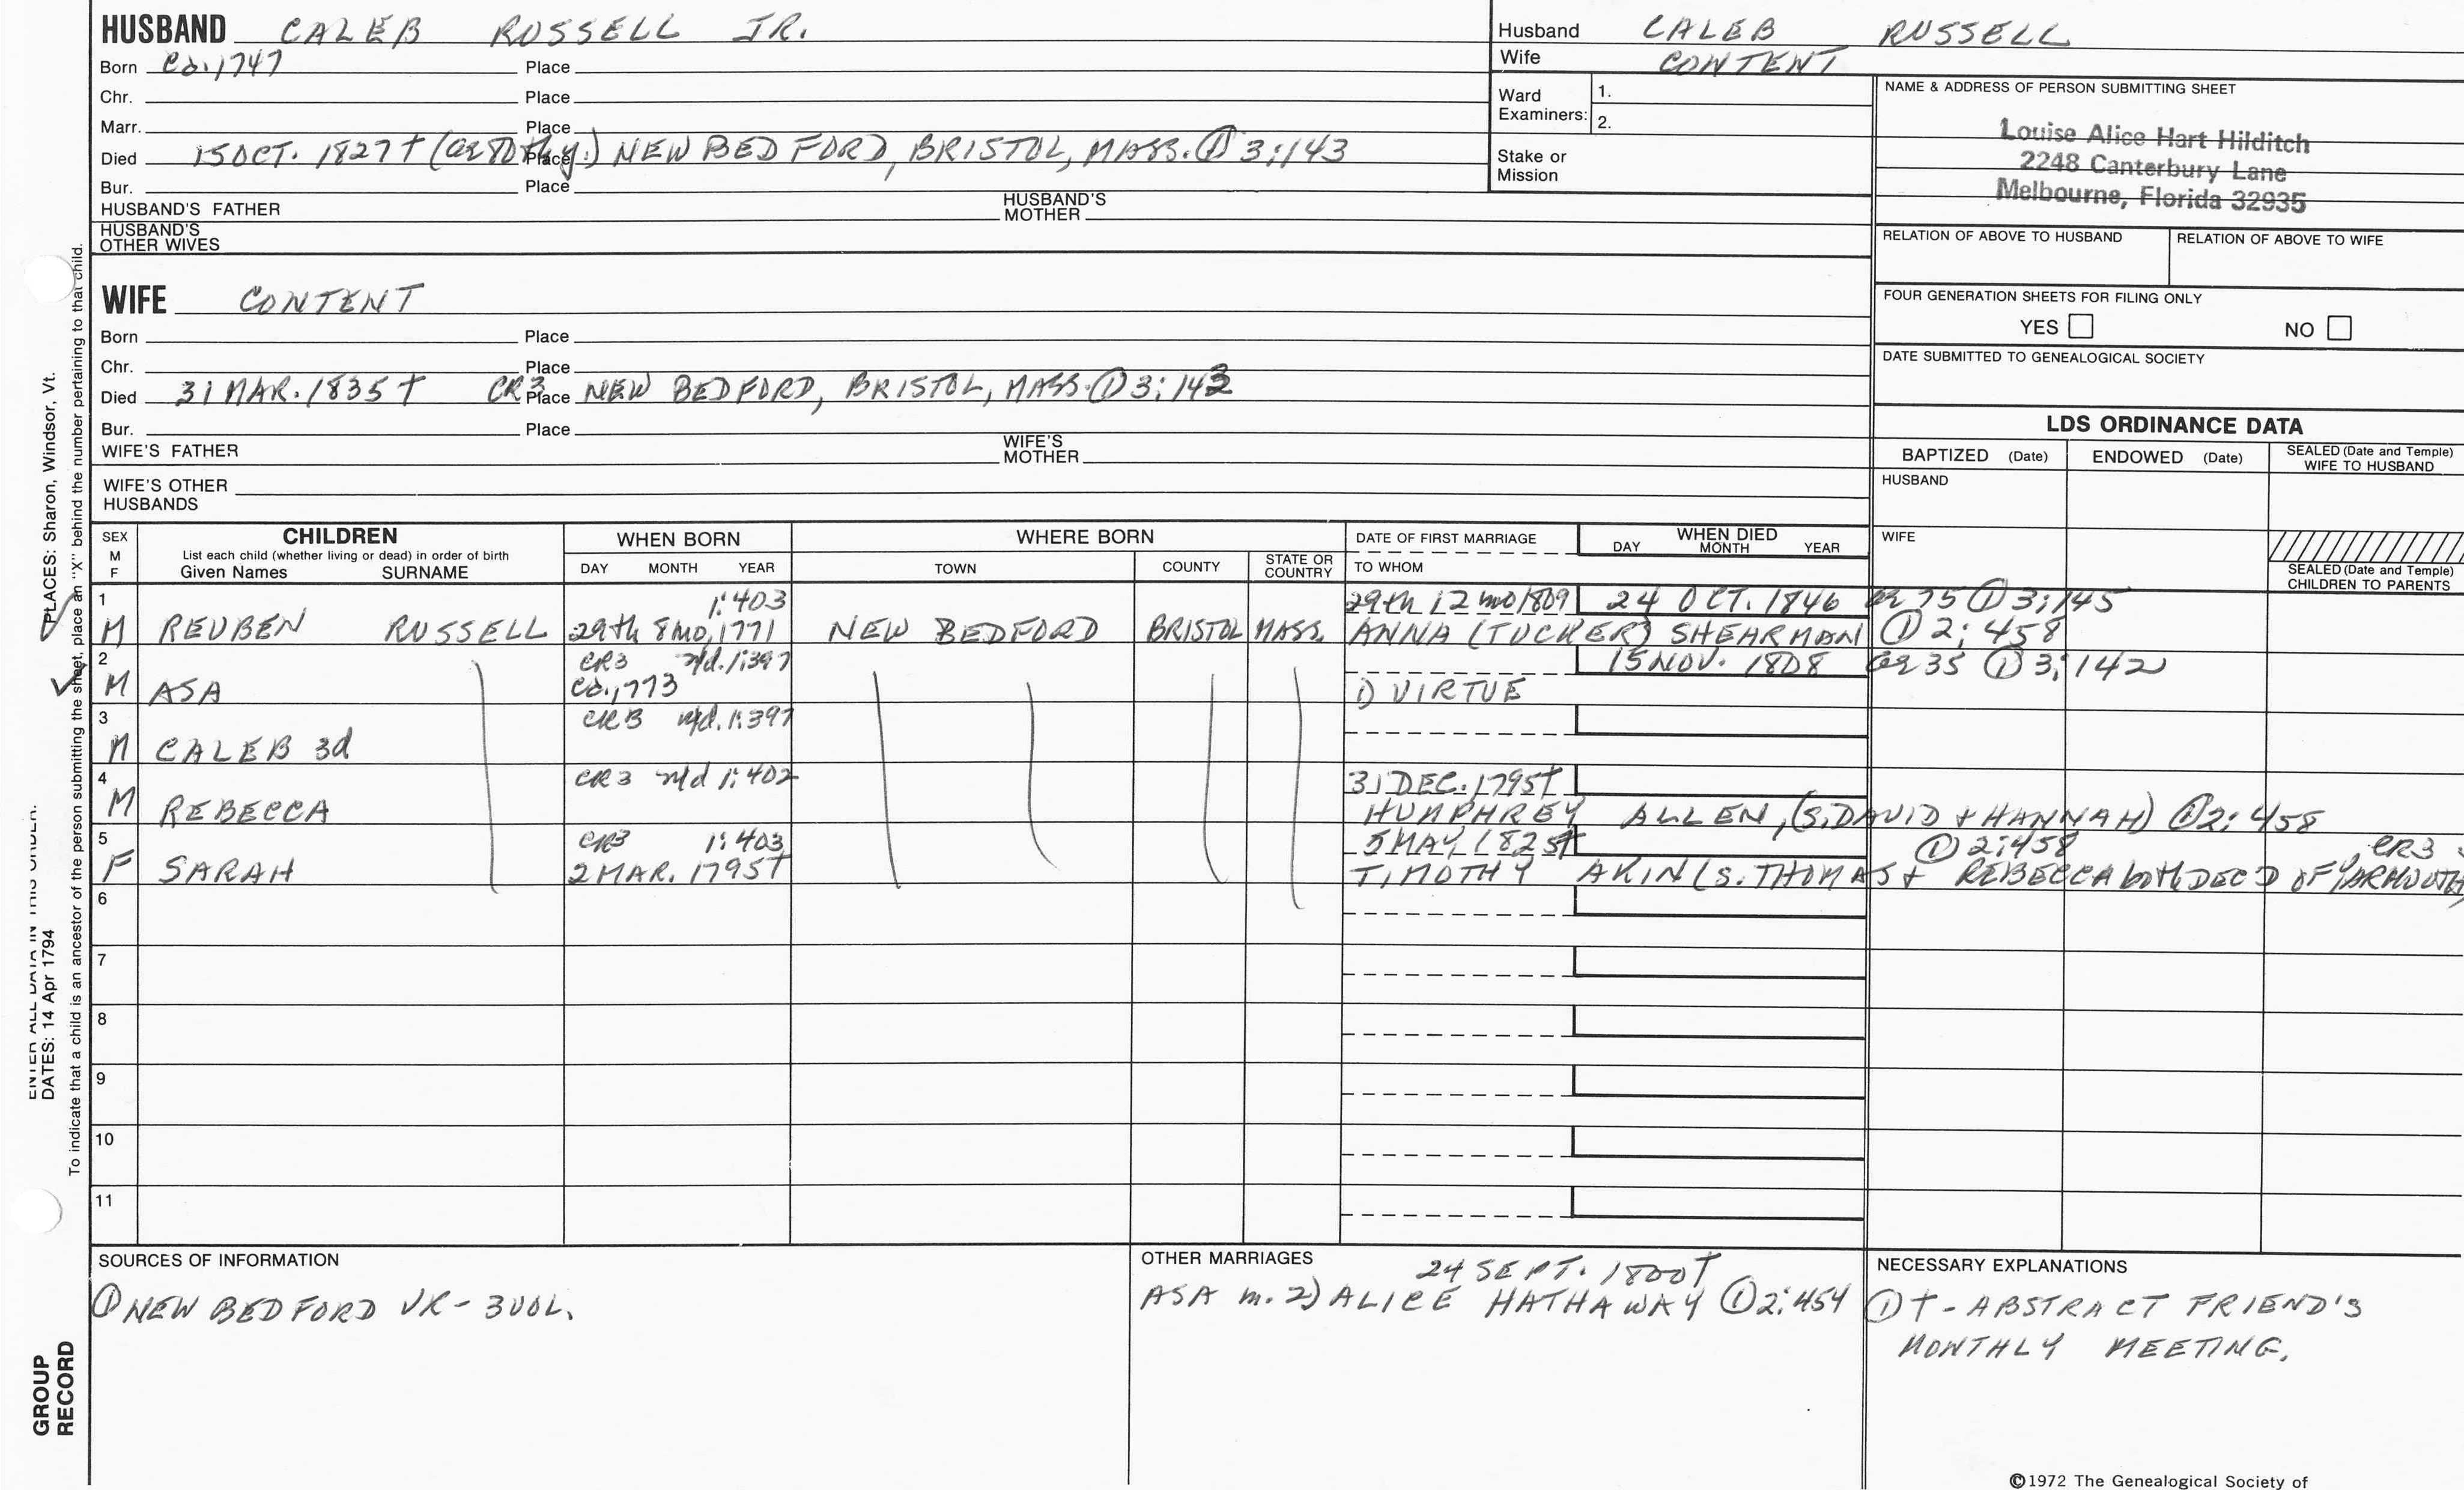 HUSBAND CALEB RUSSELL JR.
Born ca. 1747 Place
Chr. Place
Marr. Place
Died 15 OCT. 1827† Place NEW BEDFORD, BRISTOL, MASS. ① 3:143
Bur. Place
HUSBAND'S FATHER HUSBAND'S MOTHER
HUSBAND'S OTHER WIVES
Husband CALEB RUSSELL
Wife CONTENT
Ward Examiners: 1.
2.
Stake or Mission
NAME & ADDRESS OF PERSON SUBMITTING SHEET
Louise Alice Hart Hilditch
2248 Canterbury Lane
Melbourne, Florida 32935
RELATION OF ABOVE TO HUSBAND RELATION OF ABOVE TO WIFE
FOUR GENERATION SHEETS FOR FILING ONLY
YES NO
DATE SUBMITTED TO GENEALOGICAL SOCIETY
WIFE CONTENT
Born Place
Chr. Place
Died 31 MAR. 1835† CR3 Place NEW BEDFORD, BRISTOL, MASS. ① 3:143
Bur. Place
WIFE'S FATHER WIFE'S MOTHER
WIFE'S OTHER HUSBANDS
LDS ORDINANCE DATA
BAPTIZED (Date) ENDOWED (Date) SEALED (Date and Temple) WIFE TO HUSBAND
HUSBAND
WIFE
SEALED (Date and Temple) CHILDREN TO PARENTS
SEX M F
CHILDREN
List each child (whether living or dead) in order of birth
Given Names SURNAME
WHEN BORN
DAY MONTH YEAR
WHERE BORN
TOWN COUNTY STATE OR COUNTRY
DATE OF FIRST MARRIAGE
TO WHOM
WHEN DIED
DAY MONTH YEAR
1 1:403 29th 12 mo 1809 24 OCT. 1846 ae 75 ① 3:145
M REUBEN RUSSELL 29th 8 mo, 1771 NEW BEDFORD BRISTOL MASS. ANNA (TUCKER) SHEARMAN ① 2:458
2 CR3 n/d. 1:397 15 NOV. 1808 ae 35 ① 3:142
M ASA ca. 1773 1) VIRTUE
3 CR3 n/d. 1:397
M CALEB 3d
4 CR3 n/d 1:402 31 DEC. 1795†
M REBECCA HUMPHREY ALLEN, (S. DAVID & HANNAH) ① 2:458
5 CR3 1:403 5 MAY 1825† ① 2:458 CR3
F SARAH 2 MAR. 1795† TIMOTHY AKIN (S. THOMAS & REBECCA both DEC'D OF YARMOUTH)
6
7
8
9
10
11
SOURCES OF INFORMATION
① NEW BEDFORD VR - 3 VOL.
OTHER MARRIAGES
24 SEPT. 1800†
ASA m. 2) ALICE HATHAWAY ① 2:454
NECESSARY EXPLANATIONS
① † - ABSTRACT FRIEND'S
MONTHLY MEETING.
©1972 The Genealogical Society of
DATES: 14 Apr 1794
PLACES: Sharon, Windsor, Vt.
To indicate that a child is an ancestor of the person submitting the sheet, place an "X" behind the number pertaining to that child.
GROUP
RECORD